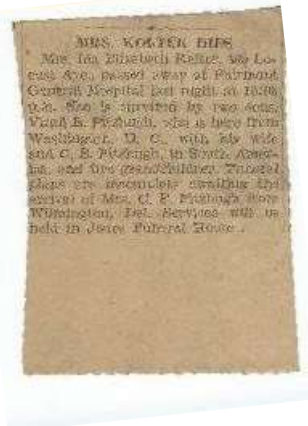 MRS. KOLTER DIES
Mrs. Ida Elizabeth Kolter, Lo-
cust Ave., passed away at Fairmont
General Hospital last night at
p.m. She is survived by two sons,
B. Fitzhugh, who is here from
Washington, D. C., with his wife
and C. B. Fitzhugh, in South Amer-
ica, and five grandchildren. Funeral
plans are incomplete awaiting the
arrival of Mrs. C. F. Fitzhugh from
Wilmington, Del. Services will be
held in Jones Funeral Home.